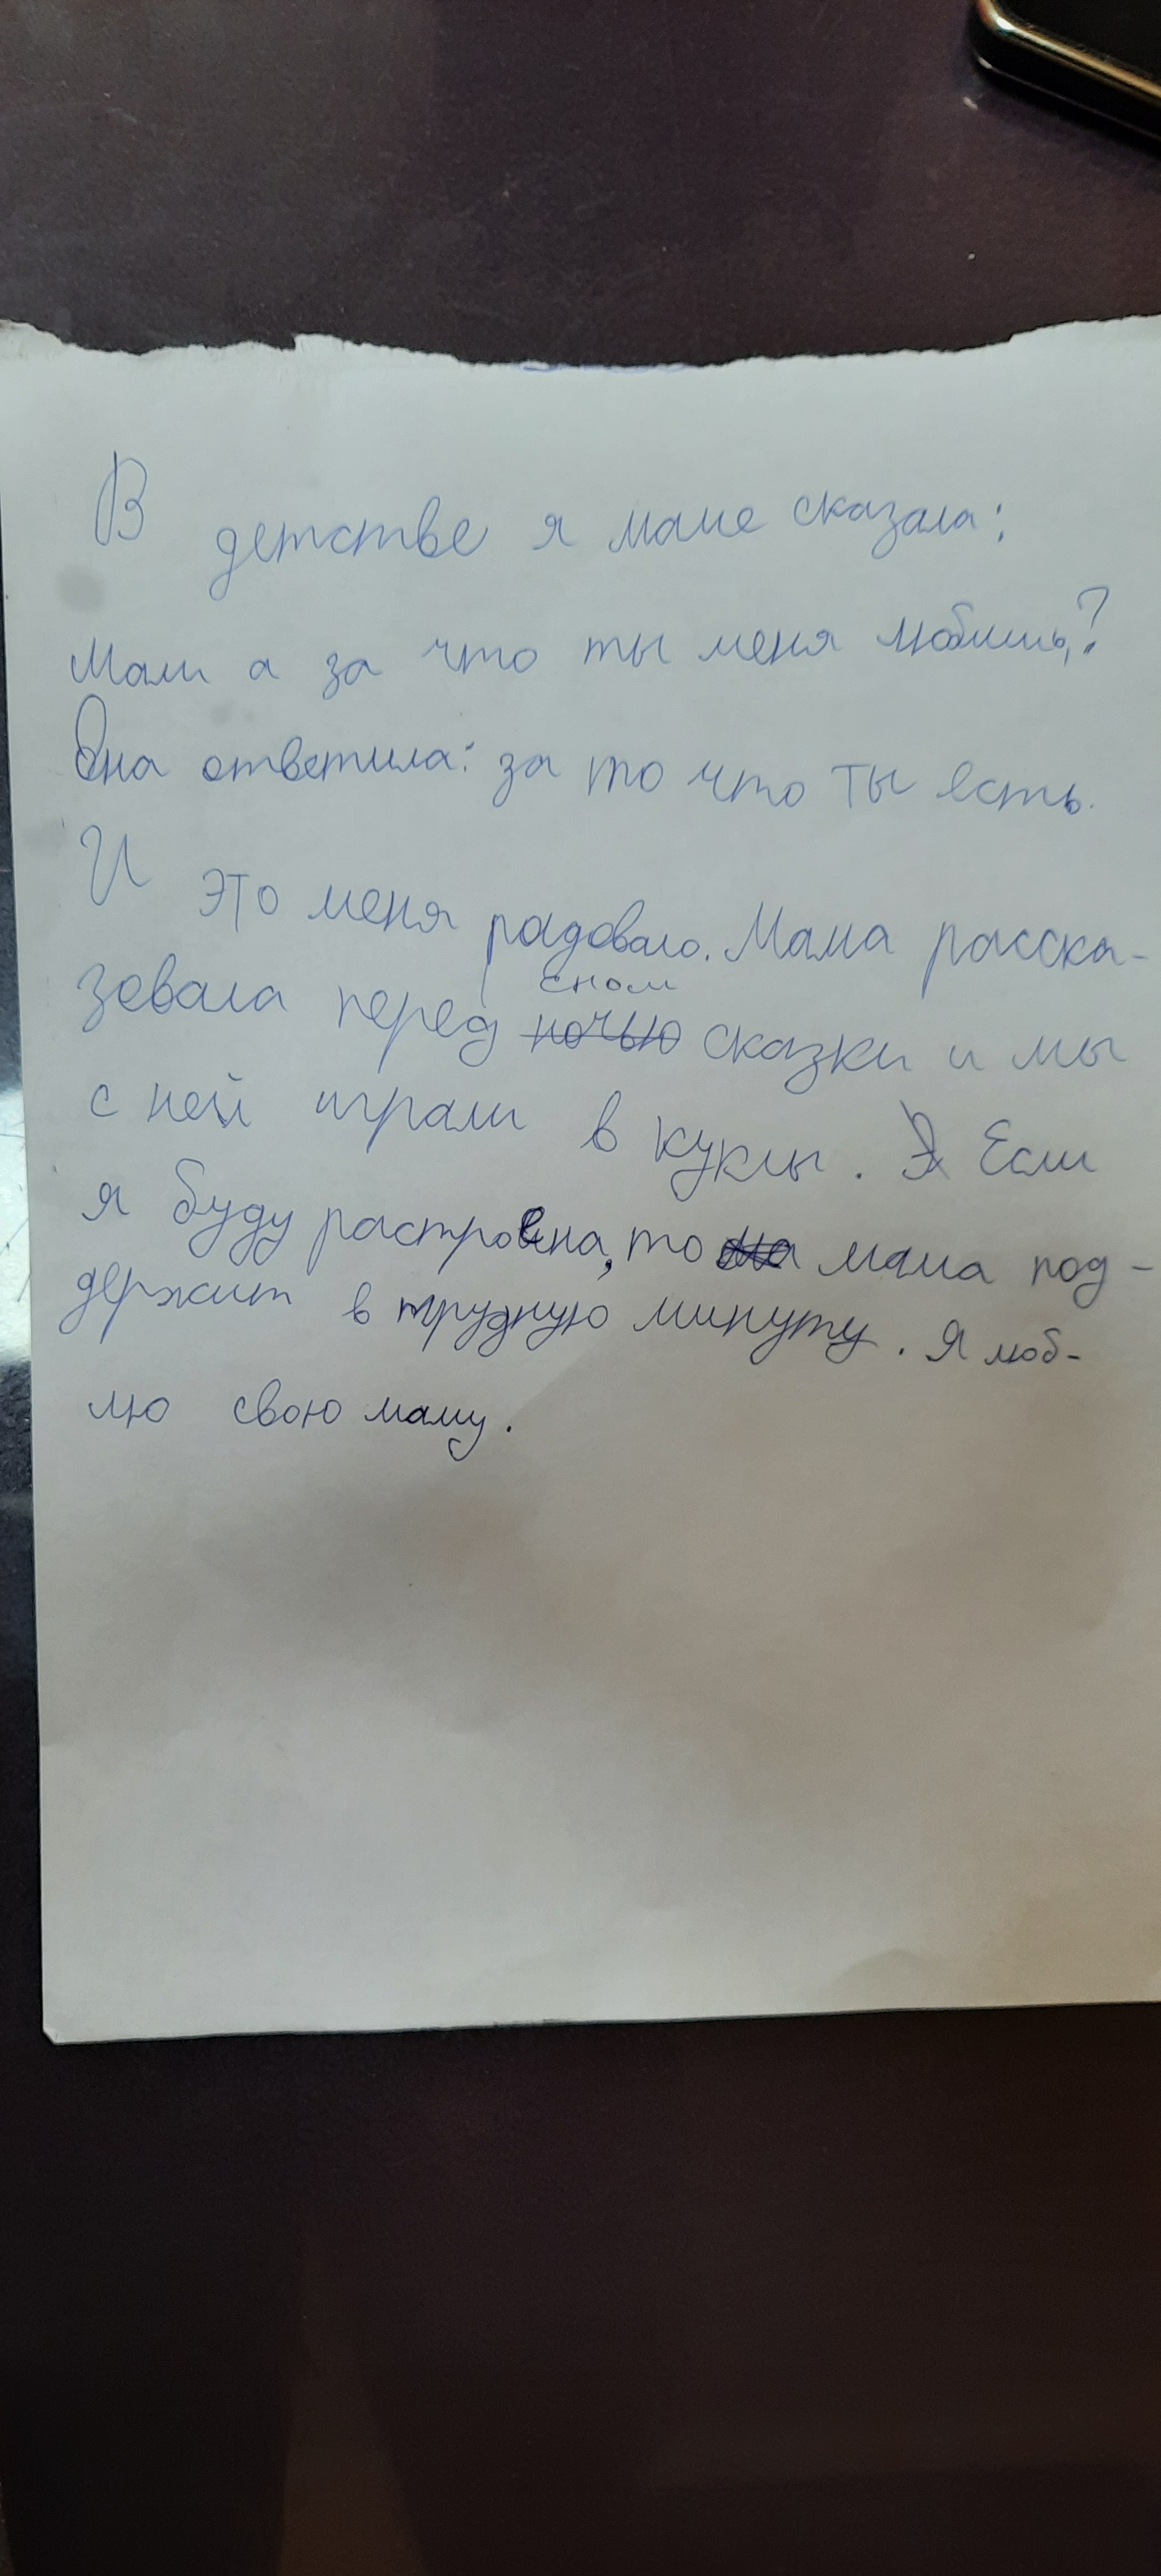 В детстве я маме сказала:
Мам а за что ты меня любишь?
Она ответила: за то что ты есть.
И это меня радовало. Мама расска-
зовала перед сном сказки и мы
с ней играли в куклы. Если
я буду растроена, то мама под-
держит в трудную минуту. Я люб-
лю свою маму.